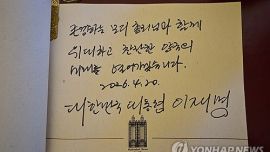 존경하는 모디 총리님과 함께
위대하고 찬란한 양국의
미래를 열어가겠습니다.
2026. 4. 20.
대한민국 대통령 이재명
YONHAPNEWS